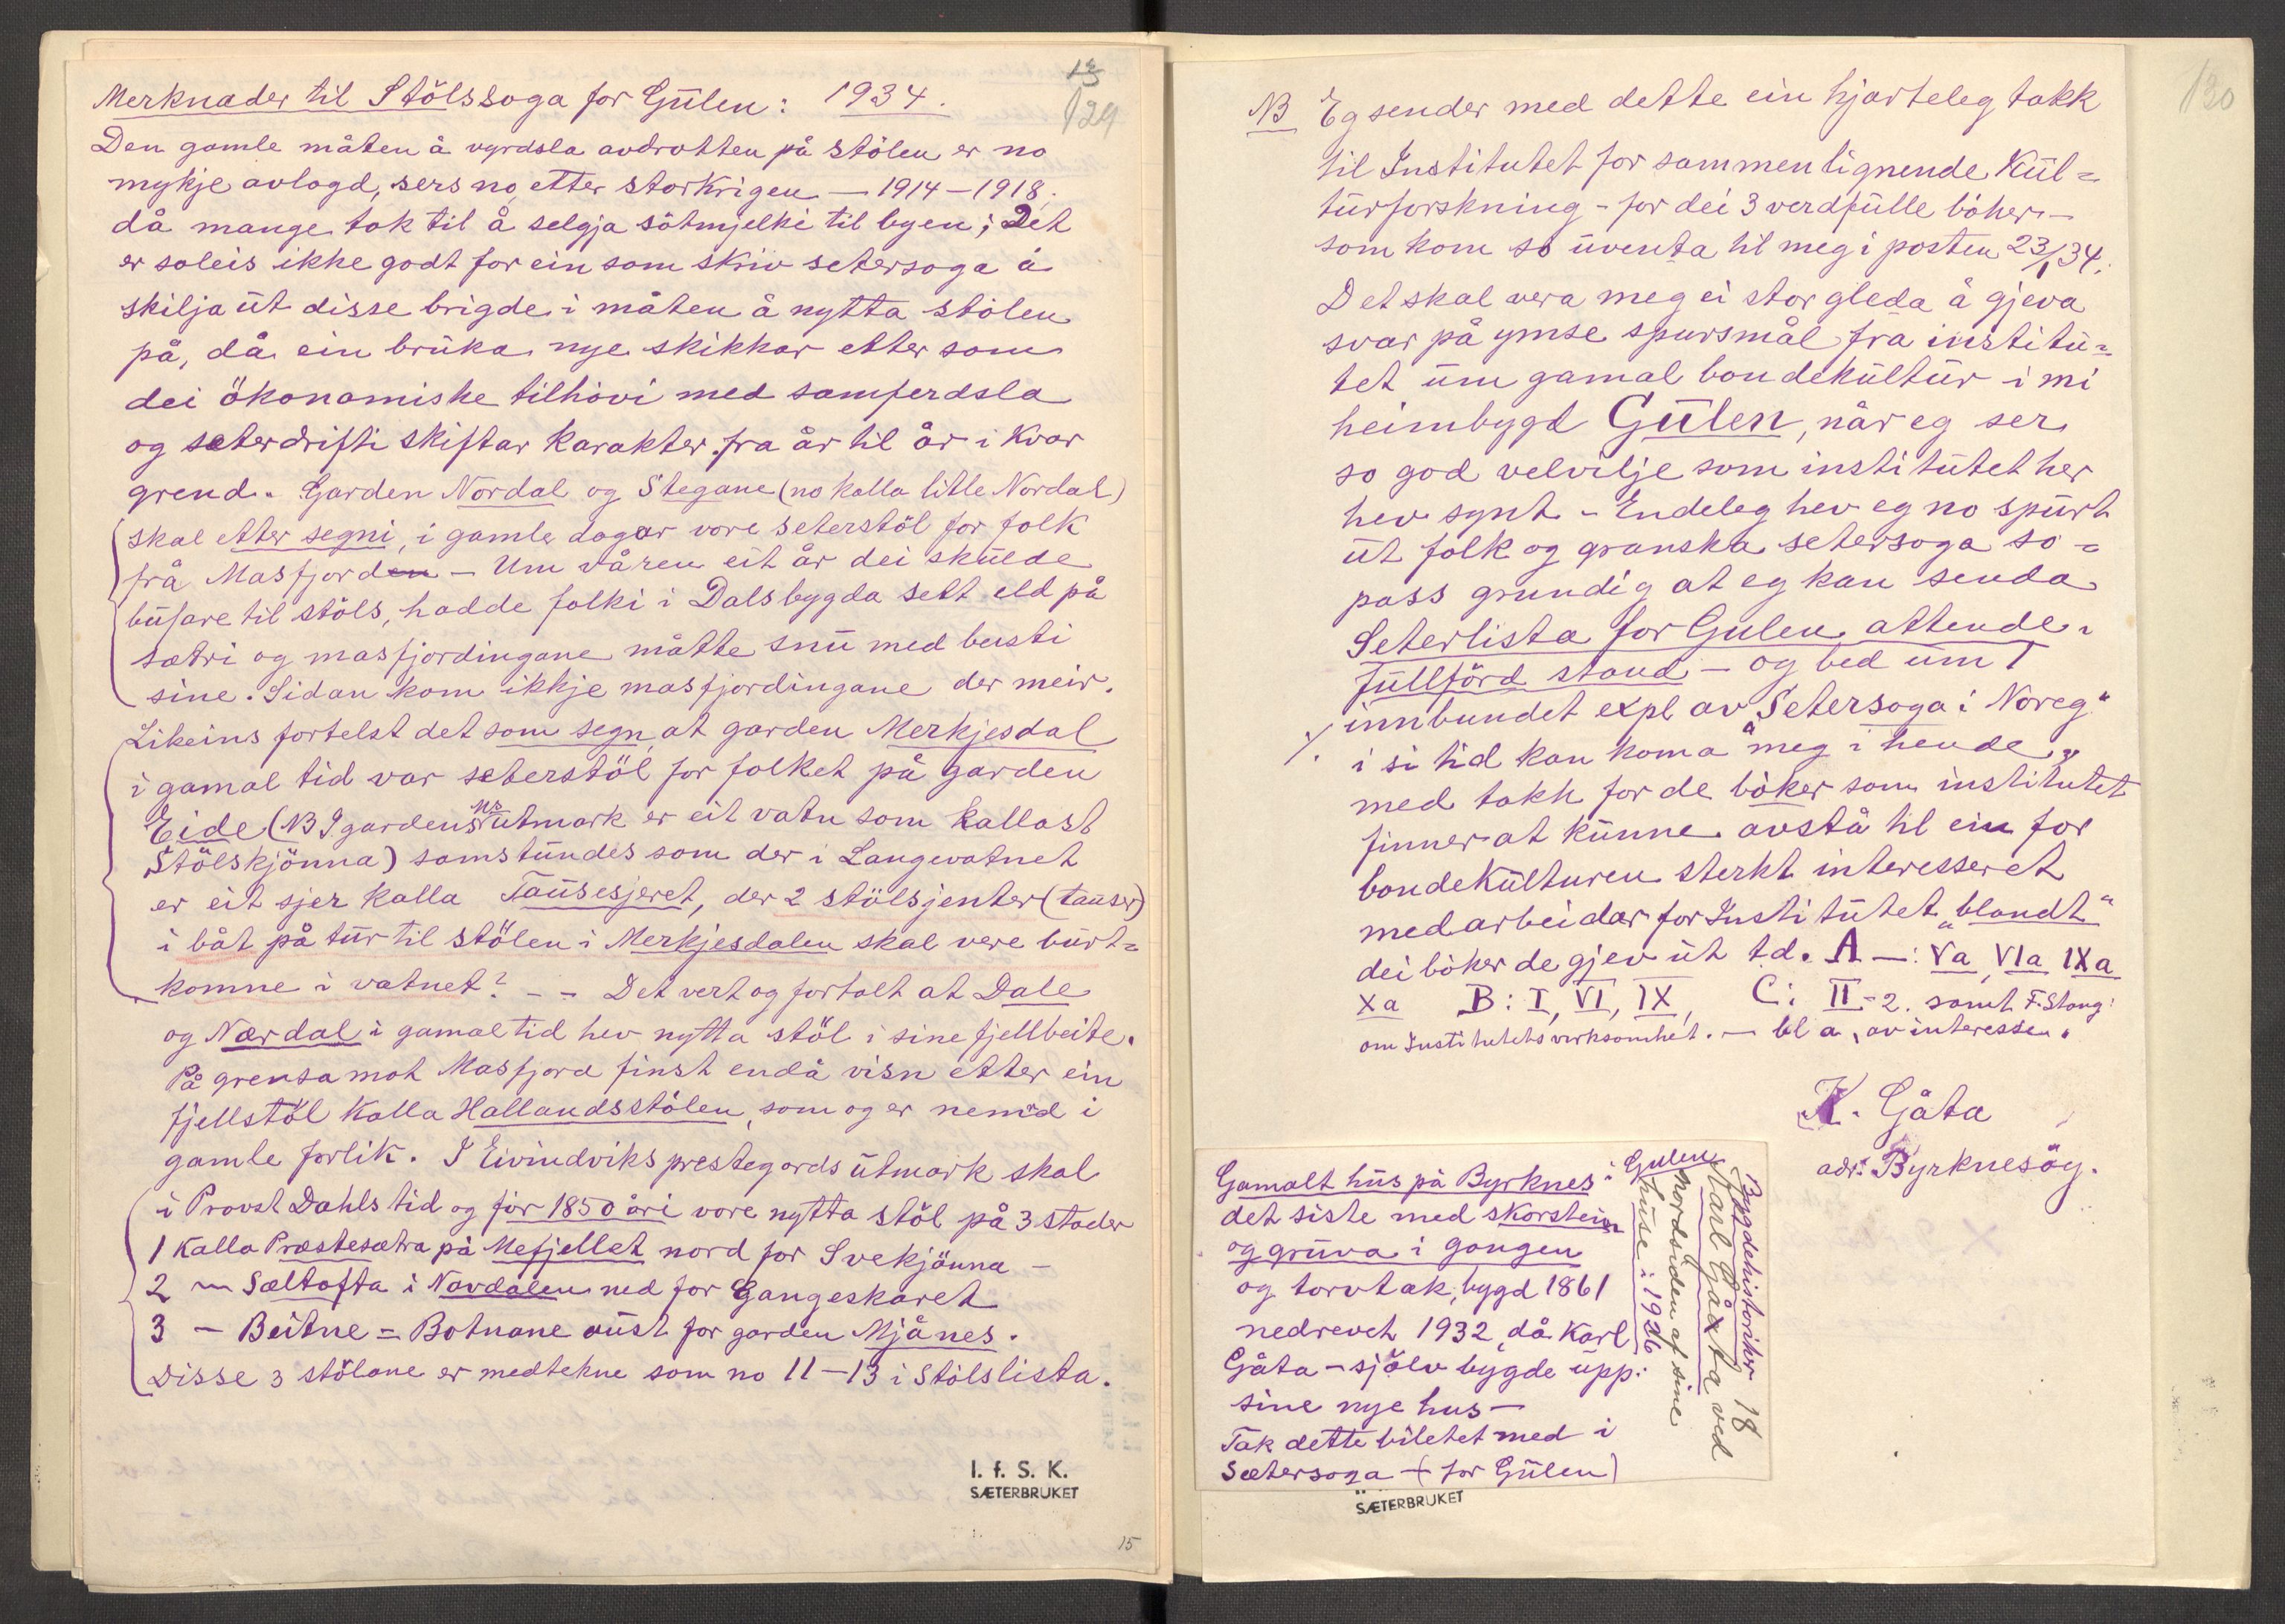 Merknader til Stölssoga for Gülen: 1934.
129
Den gamle måten å vyrdsla avdrotten på stölen er no
mykje avlogd, sers no etter storkrigen — 1914-1918,
då mange tok til å selgja sötmjelki til byen; Det
er soleis ikke godt for ein som skriv setersoga å
skilja üt disse brigde i måten å nytta stölen
på, då ein brüka nye skikkar etter som
dei ökonomiske tilhövi med samferdsla
og seterdrifti skiftar karakter fra år til år i kvar
grend. Garden Nordal og Stegane (no kalla litle Nordal)
skal etter segni, i gamle dagar vore seterstöl for folk
frå Masfjorden - Um våren eit år dei skülde
büfare til stöls, hadde folki i Dalsbygda sett eld på
sætri og masfjordingane måtte snü med busti
sine. Sidan kom ikkje masfjordingane der meir.
Likeins fortelst det som segn at garden Merkjesdal
i gamal tid var seterstöl for folket på garden
Eide (NB I gardens ütmark er eit vatn som kallast
Stölskjönna) samstündes som der i Langevatnet
er eit sjer kalla Taüsesjeret, der 2 stölsjenter (taüser)
i båt på tür til stölen i Merkjesdalen skal vere bürt=
komne i vatnet? -- Det vert og fortalt at Dale
og Nærdal i gamal tid hev nytta stöl i sine fjellbeite.
På grensa mot Masfjord finst endå visn etter ein
fjellstöl kalla Hallandsstölen, som og er nemnd i
gamle forlik. I Eivindviks prestegards ütmark skal
i Provst Dahls tid og för 1850 åri vore nytta stöl på 3 stader
1 Kalla Præstesætra på Mefjellet nord for Svekjönna -
2 — Sæltofta i Navdalen ned for Gangeskaret
3 - Beitne = Botnane aüst for garden Mjånes.
Disse 3 stölane er medtekne som no 11-13 i Stölslista.
I. f. S. K.
SÆTERBRUKET
15
130
NB Eg sender med dette ein hjarteleg takk
til Institutet for sammenlignende Kül=
türforskning - for dei 3 verdfülle böker -
som kom so üventa til meg i posten 23/1 34.
Det skal vera meg ei stor gleda å gjeva
svar på ymse spursmål frå institü=
tet üm gamal bondekültür i mi
heimbygd Gülen, når eg ser
so god velvilje som institütet her
hev synt - Endeleg hev eg no spürt
üt folk og granska setersoga so=
pass grundig at eg kan senda
Seterlista for Gulen attende i
füllförd stand - og bed um 1
innbundet expl av "Setersoga i Noreg"
i si tid kan koma meg i hende,
med takk for de böker som institütet
finner at künne avstå til ein for
bondekülturen sterkt interesseret
medarbeidar for Institütet "blandt"
dei böker de gjev üt td. A —: Va, VIa IXa
Xa B: I, VI, IX, C: II-2. samt F. Stang:
om Institutets virksomhet. — bl a, av interesse.
K. Gåta
adr: Byrknesöy.
Gamalt hüs på Byrknes i Gulen
det siste med skorstein
og grüva i gongen
og torvtak, bygd 1861
nedrevet 1932, då Karl
Gåta - sjölv bygde üpp
sine nye hus -
Tak dette biletet med i
Sætersoga + for Gülen)
Bygdehistoriker 18
Karl Gåxta ved
nordsiden af sine
hüse i 1926
SÆTERBRUKET